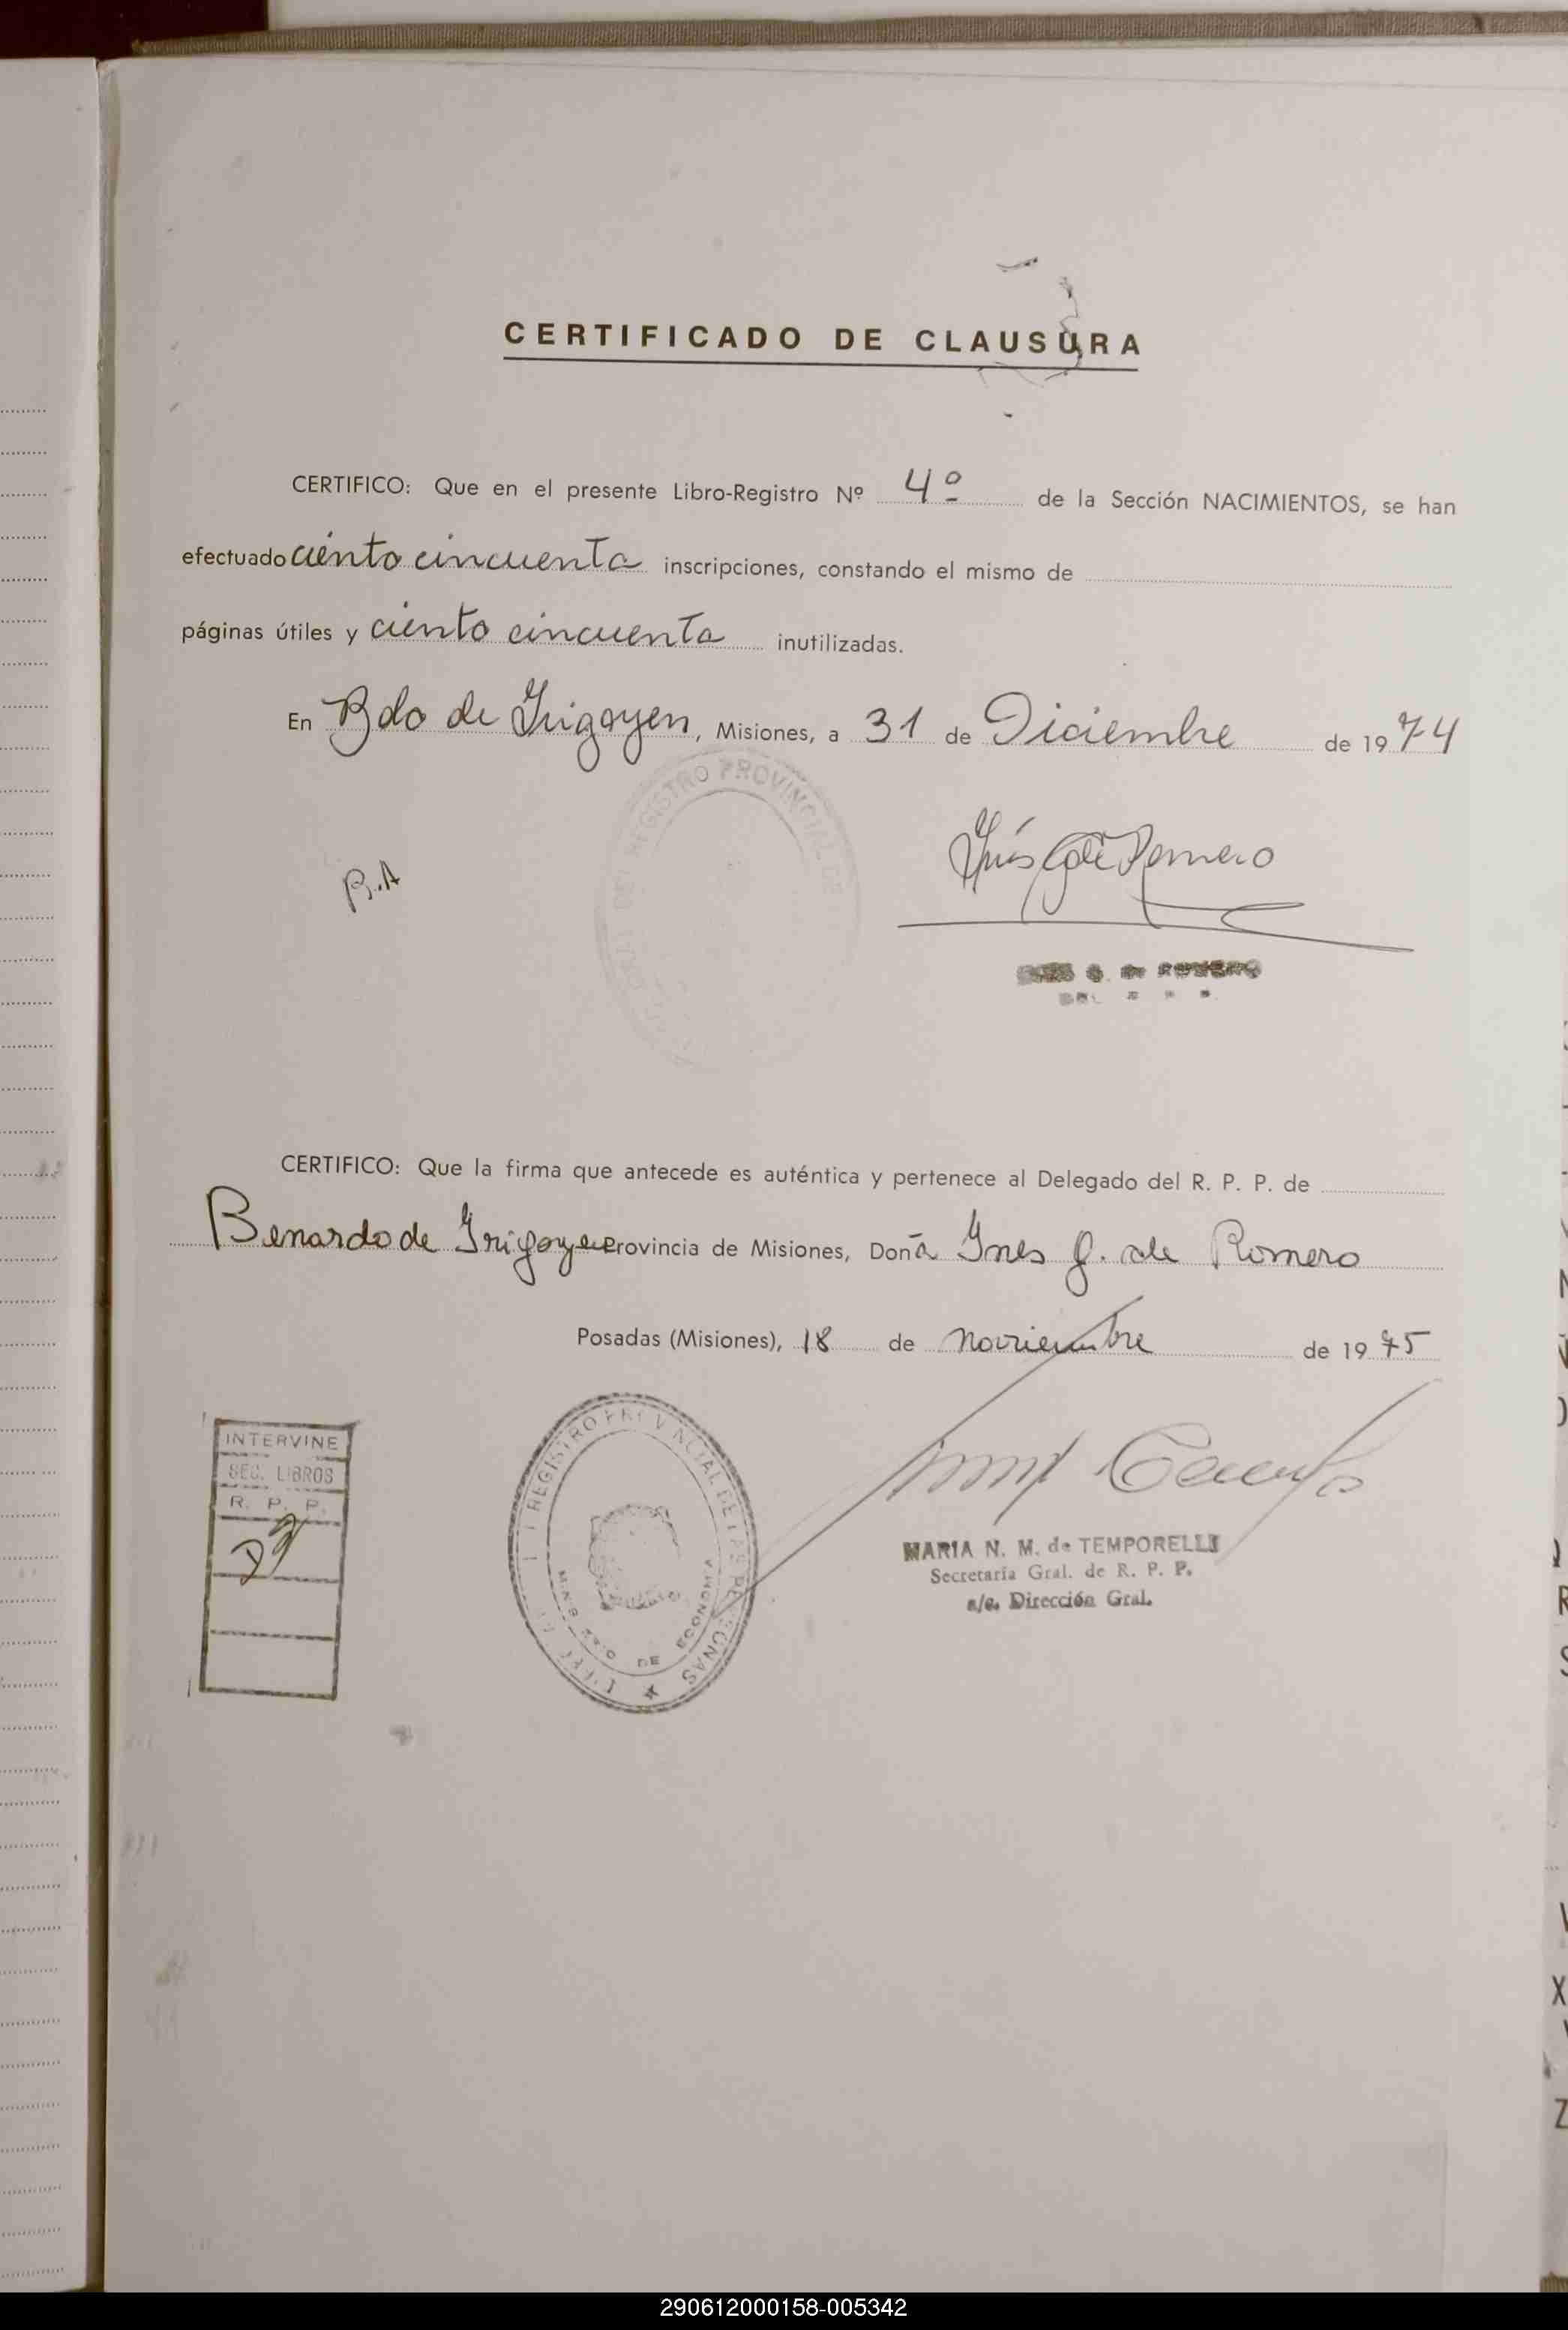 CERTIFICADO DE CLAUSURA
CERTIFICO: Que en el presente Libro-Registro Nº 4º de la Sección NACIMIENTOS, se han
efectuado ciento cincuenta inscripciones, constando el mismo de
páginas útiles y ciento cincuenta inutilizadas.
En Bdo de Irigoyen, Misiones, a 31 de Diciembre de 1974
REGISTRO PROVINCIAL DE
B.A
Inés G de Romero
CERTIFICO: Que la firma que antecede es auténtica y pertenece al Delegado del R. P. P. de
Benardo de Irigoyen Provincia de Misiones, Doña Ines G. de Romero
Posadas (Misiones), 18 de noviembre de 1975
INTERVINE
SEC. LIBROS
R. P. P.
REGISTRO PROVINCIAL DE LAS PERSONAS
MINISTERIO DE ECONOMIA
MARIA N. M. de TEMPORELLI
Secretaria Gral. de R. P. P.
a/c. Dirección Gral.
290612000158-005342